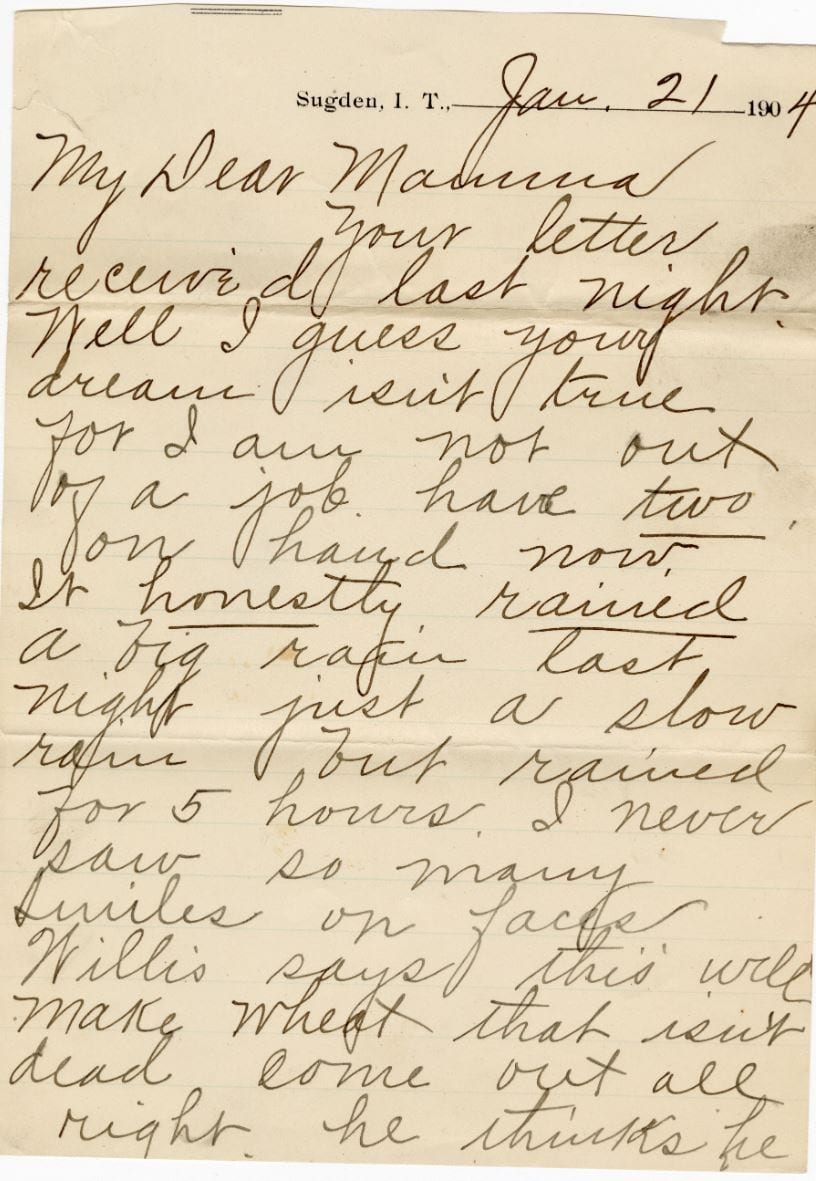 Sugden, I. T., Jan. 21 1904
My Dear Mamma
Your letter
received last night.
Well I guess your
dream isn't true
for I am not out
of a job. have two
on hand now.
It honestly rained
a big rain last
night just a slow
rain but rained
for 5 hours. I never
saw so many
smiles on faces
Willis says this will
make wheat that isn't
dead come out all
right. he thinks he